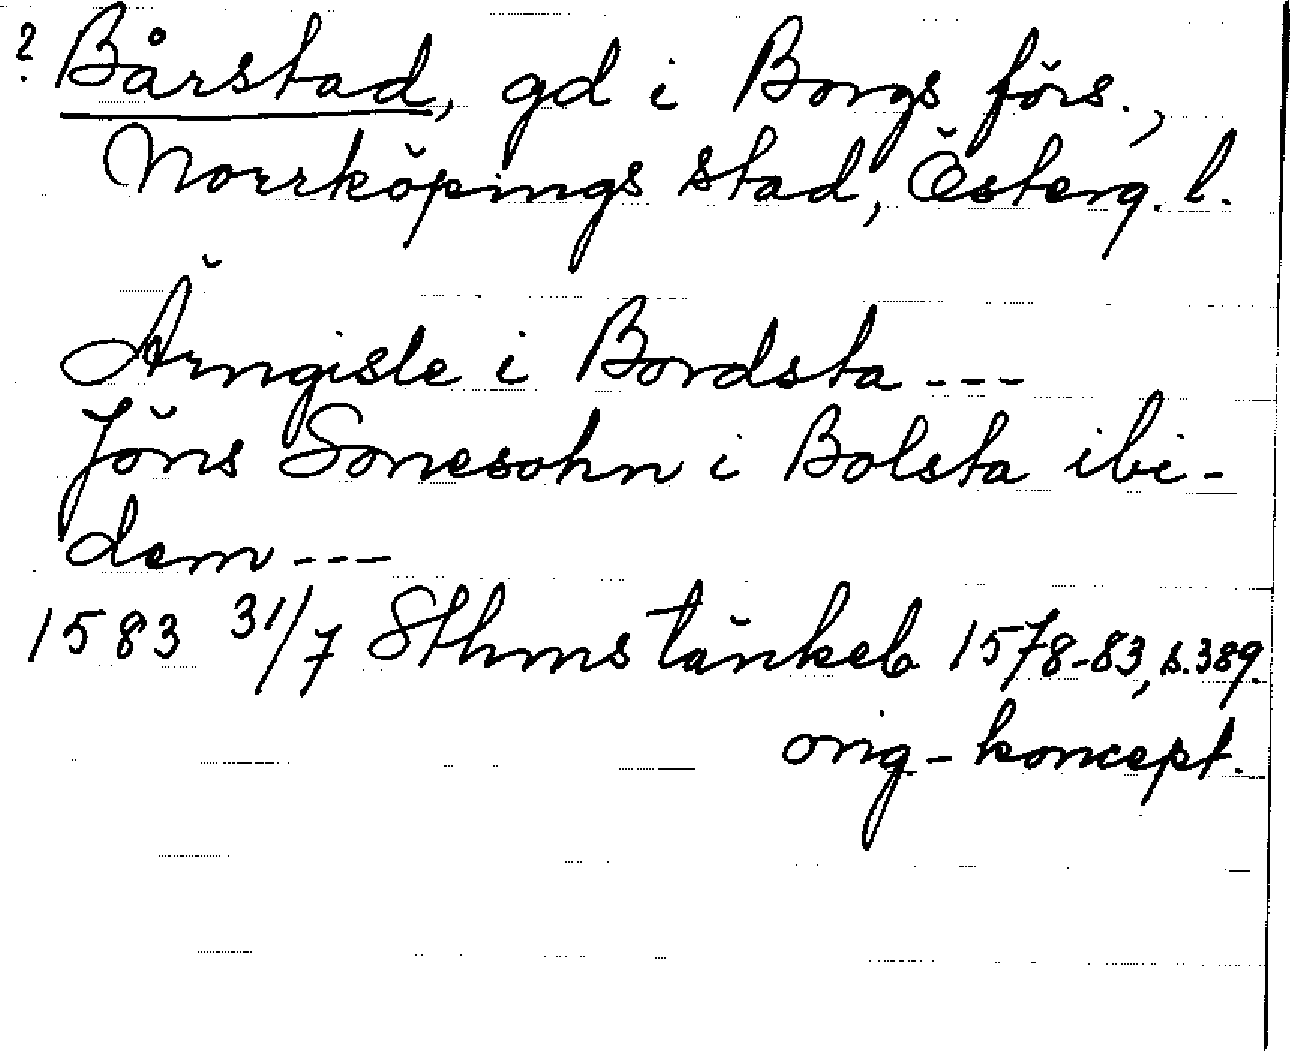 ? Bårstad, gd i Borgs förs.,
Norrköpings stad, Österg. l.
Ärngisle i Bordsta ---
Jöns Sonesohn i Bolsta ibi-
dem ---
1583 31/7 Sthms tänkeb 1578-83, s. 389.
orig-koncept.